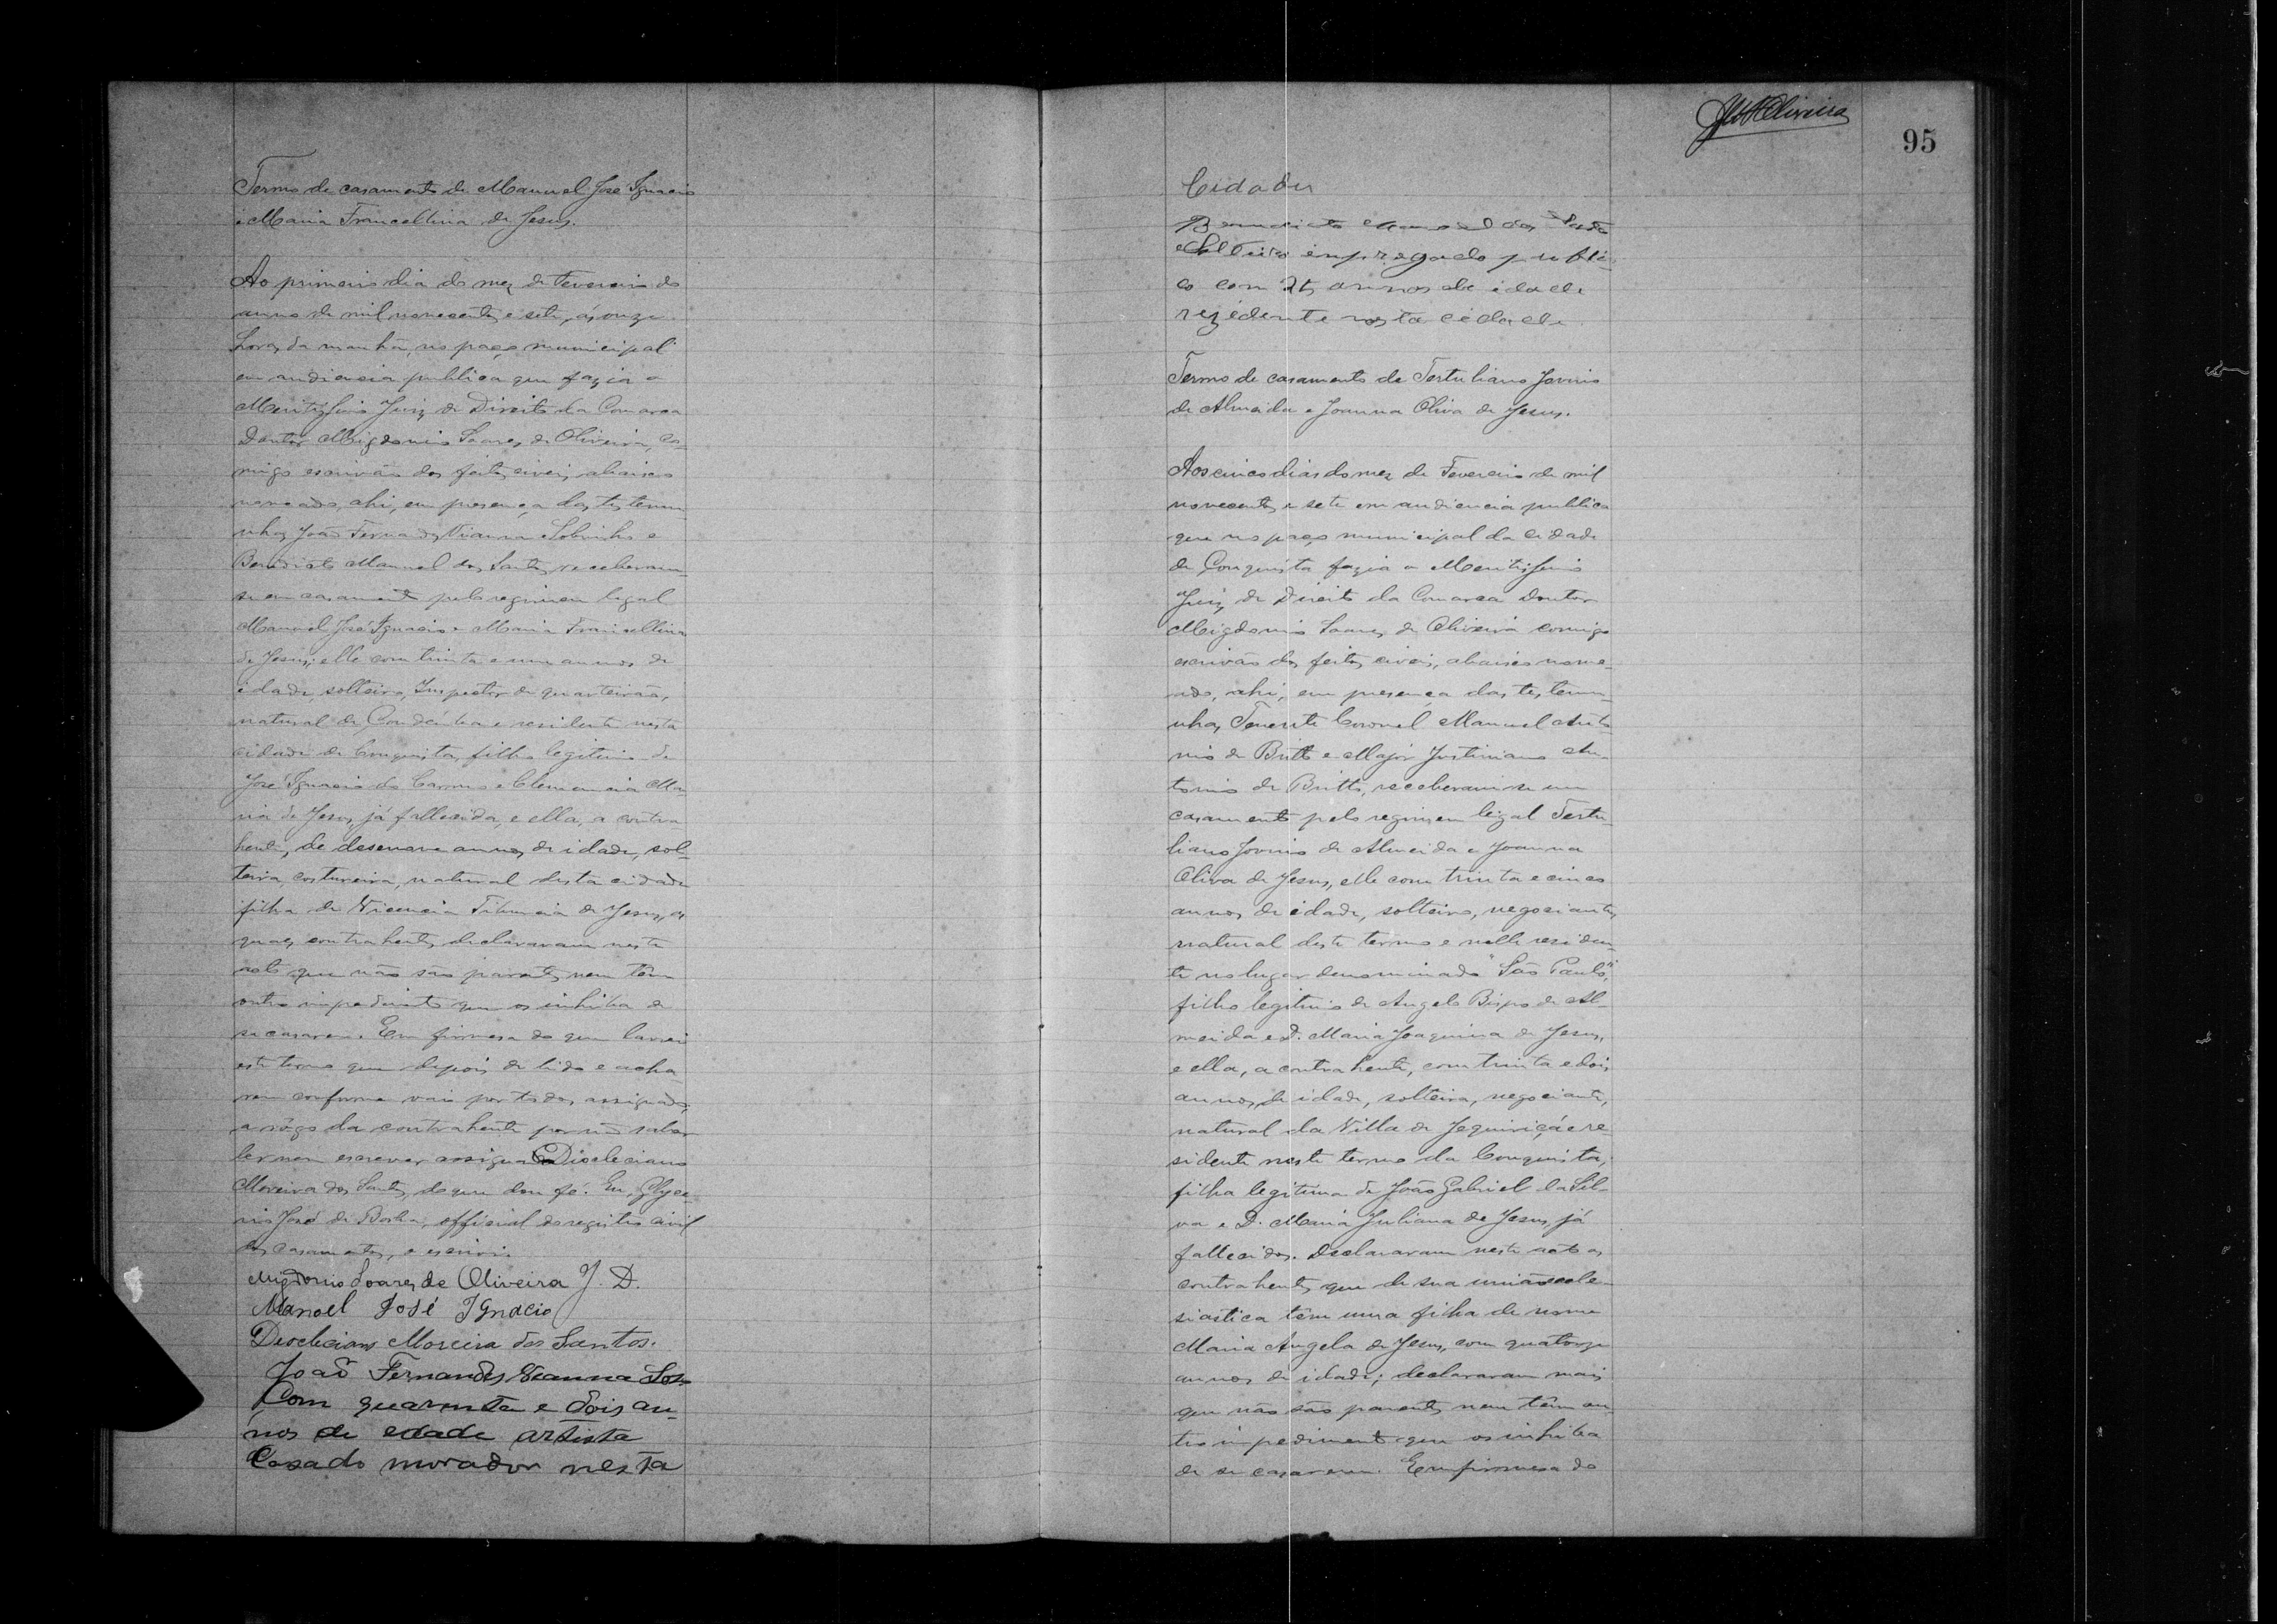 Termo de casamento de Manuel José Ignacio
e Maria Francellina de Jesus.
Ao primeiro dia do mez de Fevereiro do
anno de mil novecentos e sete, ás onze
horas da manhã, no paço municipal
em audiencia publica que fazia o
Meritissimo Juiz de Direito da Comarca
Doutor Migdonio Soares de Oliveira, co-
migo escrivão dos feitos civeis, abaixo
nomeado, ahi, em presença das testemu-
nhas João Fernandes Vianna Sobrinho e
Benedicto Manuel dos Santos, receberam-
se em casamento pelo regimen legal
Manuel José Ignacio e Maria Francellina
de Jesus; elle com trinta e um annos de
idade, solteiro, Inspector de quarteirão,
natural de e residente nesta
cidade de Conquista, filho legitimo de
José Ignacio do Carmo e Clemencia Ma-
ria de Jesus, já fallecida, e ella, a contra-
hente, de desenove annos de idade, sol-
teira, costureira, natural desta cidade
filha de Vicencia Tiburcia de Jesus, os
quaes contrahentes declararam neste
acto que não são parentes nem têm
outro impedimento que os inhiba de
se casarem. Em firmesa do que lavrei
este termo que depois de lido e acha-
rem conforme vai por todos assignado,
a rôgo da contrahente por não saber
ler nem escrever assigna Diocleciano
Moreira dos Santos, do que dou fé. Eu, Glyce-
rio José da Rocha, official do registro civil
dos casamentos, o escrivi.
Migdonio Soares de Oliveira J. D.
Manoel José Ignacio
Deocleciano Moreira dos Santos.
João Fernandes Vianna Sob
Com quarenta e dois an-
nos de edade artista
Casado morador nesta
95
Cidader
Benedicto Manoel dos Santos
Solteiro empregado publi-
co com 25 annos de idade
rezidente nesta cidade
Termo de casamento de Tertuliano Jovino
de Almeida e Joanna Oliva de Jesus.
Aos cinco dias do mez de Fevereiro de mil
novecentos e sete em audiencia publica
que no paço municipal da cidade
de Conquista fazia o Meritissimo
Juiz de Direito da Comarca Doutor
Migdonio Soares de Oliveira comigo
escrivão dos feitos civeis, abaixo nome-
ado, ahi, em presença das testemu-
nhas, Tenente Coronel Manuel Anto-
nio de Britto e Major Justiniano An-
tonio de Britto, receberam-se em
casamento pelo regimem legal Tertu-
liano Jovino de Almeida e Joanna
Oliva de Jesus, elle com trinta e cinco
annos de idade, solteiro, negociante,
natural deste termo e nelle residen-
te no lugar denominado "São Paulo",
filho legitimo de Angelo Bispo de Al-
meida e D. Maria Joaquina de Jesus,
e ella, a contrahente, com trinta e dois
annos de idade, solteira, negociante,
natural da Villa de Jequiriçá e re-
sidente neste termo da Conquista,
filha legitima de João Gabriel da Sil-
va e D. Maria Juliana de Jesus, já
fallecidos. Declararam neste acto os
contrahentes que de sua união eccle-
siastica têm uma filha de nome
Maria Angela de Jesus, com quatorze
annos de idade; declararam mais
que não são parentes nem têm ou-
tro impedimento que os inhiba
de se casarem. Em firmesa do